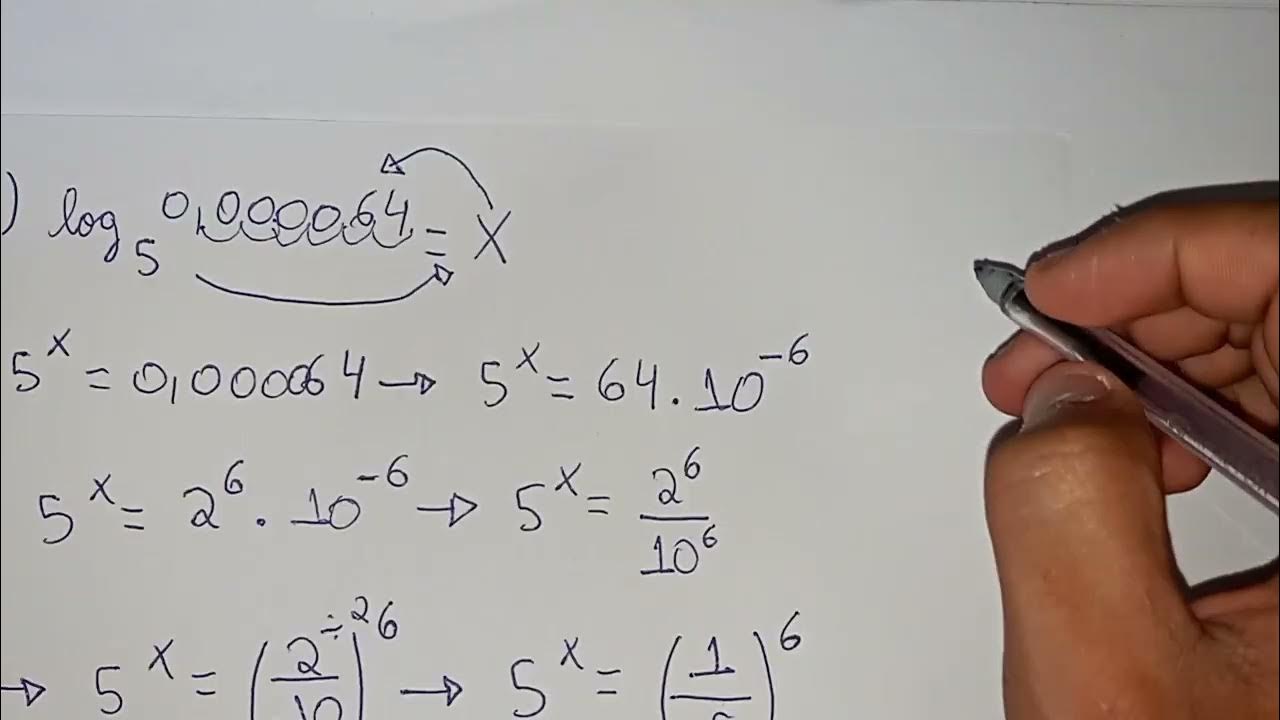 ) log₅ 0,000064 = X
5^x = 0,000064 → 5^x = 64 . 10^-6
5^x = 2^6 . 10^-6 → 5^x = 2^6/10^6
→ 5^x = (2/10)^6 ÷2 → 5^x = (1/
)^6